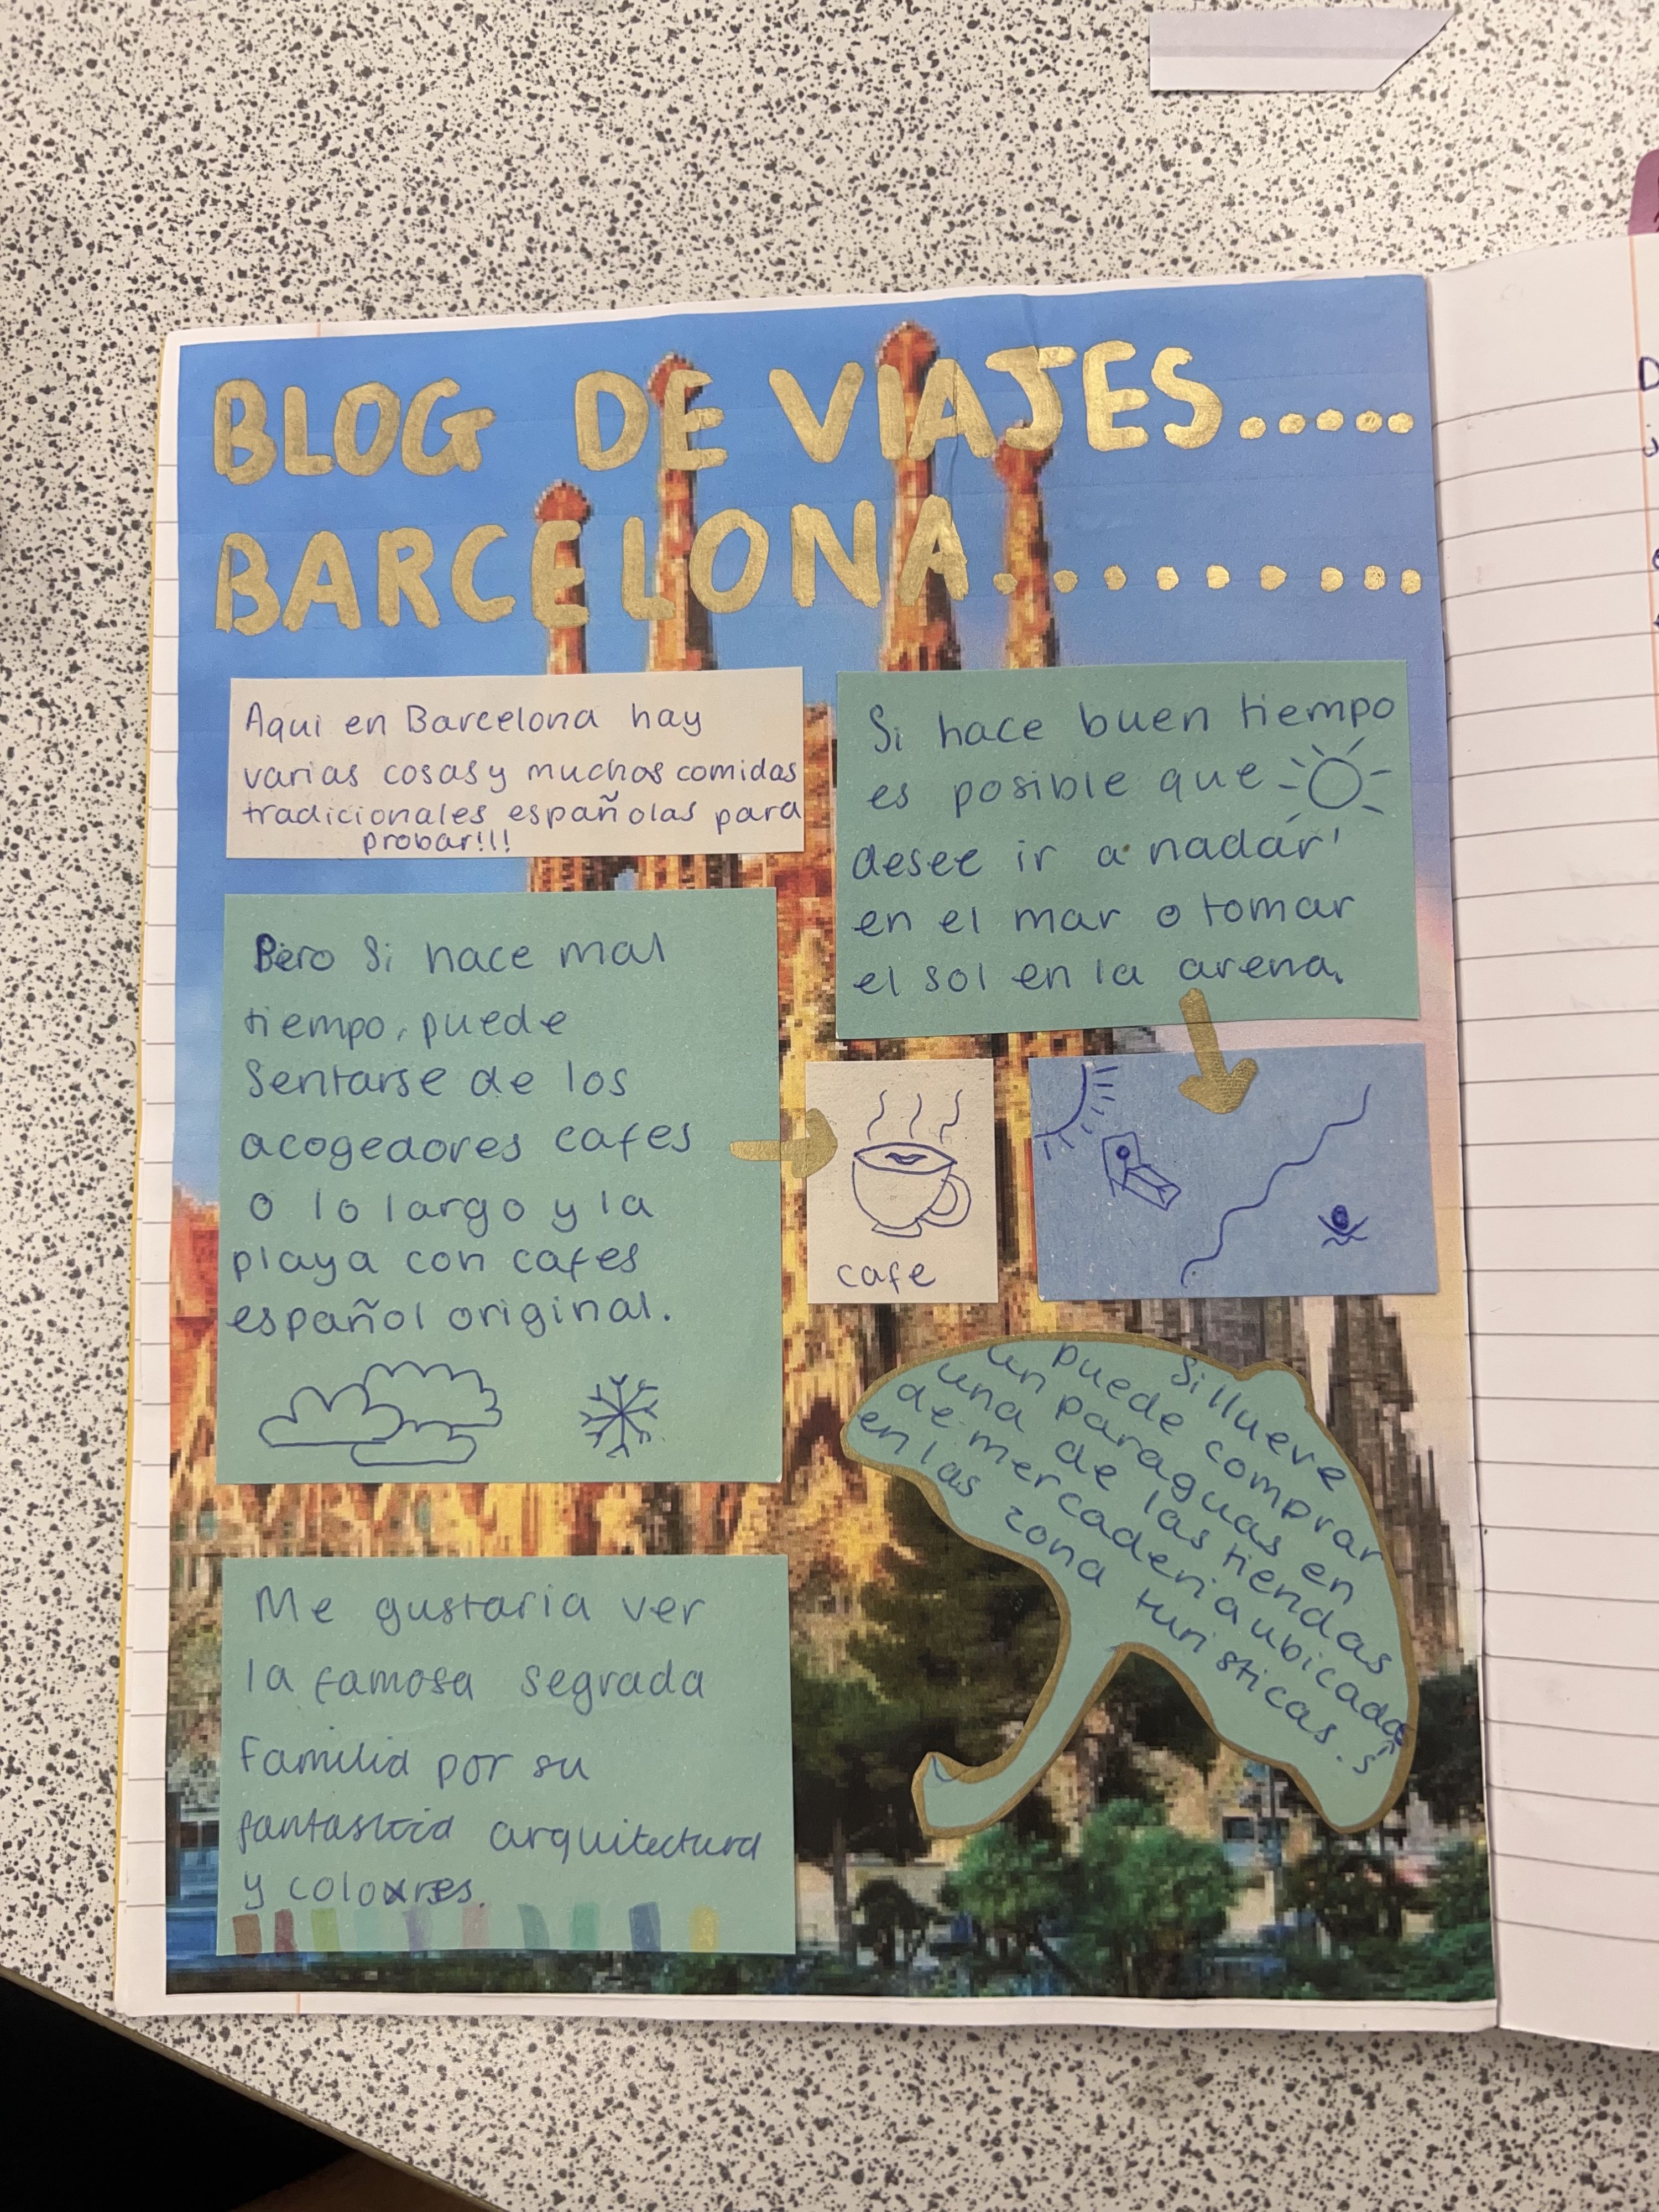 BLOG DE VIAJES.....
BARCELONA.........
Aqui en Barcelona hay
varias cosas y muchas comidas
tradicionales españolas para
probar!!!
Si hace buen tiempo
es posible que
desee ir a nadar
en el mar o tomar
el sol en la arena.
Pero Si hace mal
tiempo, puede
Sentarse de los
acogedores cafes
o lo largo y la
playa con cafes
español original.
cafe
Si llueve
puede comprar
un paraguas en
una de las tiendas
de mercaderia ubicadas
en las zona turisticas.
s
Me gustaria ver
la famosa segrada
Familia por su
fantastica arquitectura
y colores.